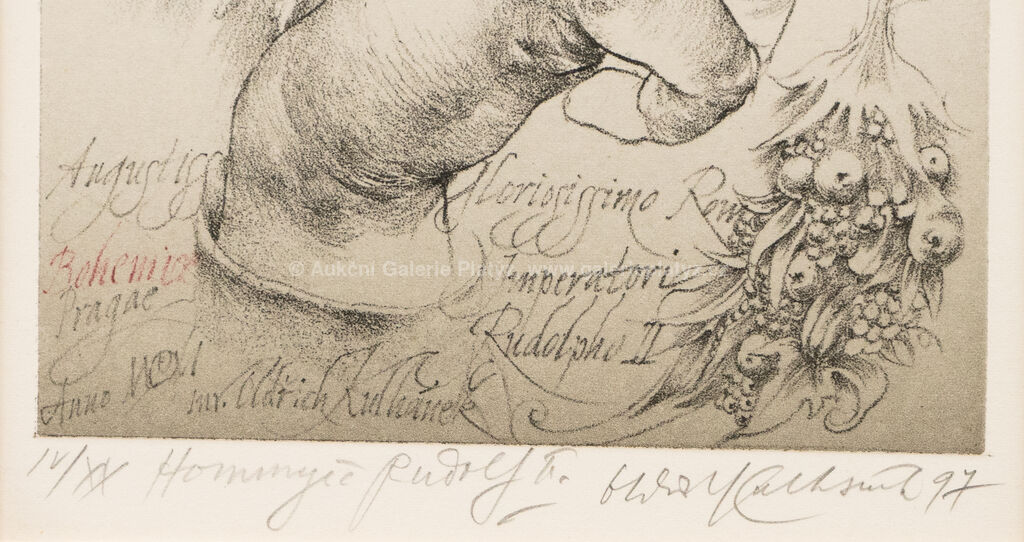 Augustiss
Gloriosissimo Rom
Bohemiæ
Imperatori
Pragae
Rudolpho II
Anno
inv. Oldřich Kulhánek
© Aukční Galerie Platýz
IV/XX Hommage à Rudolf II. Oldřich Kulhánek 97